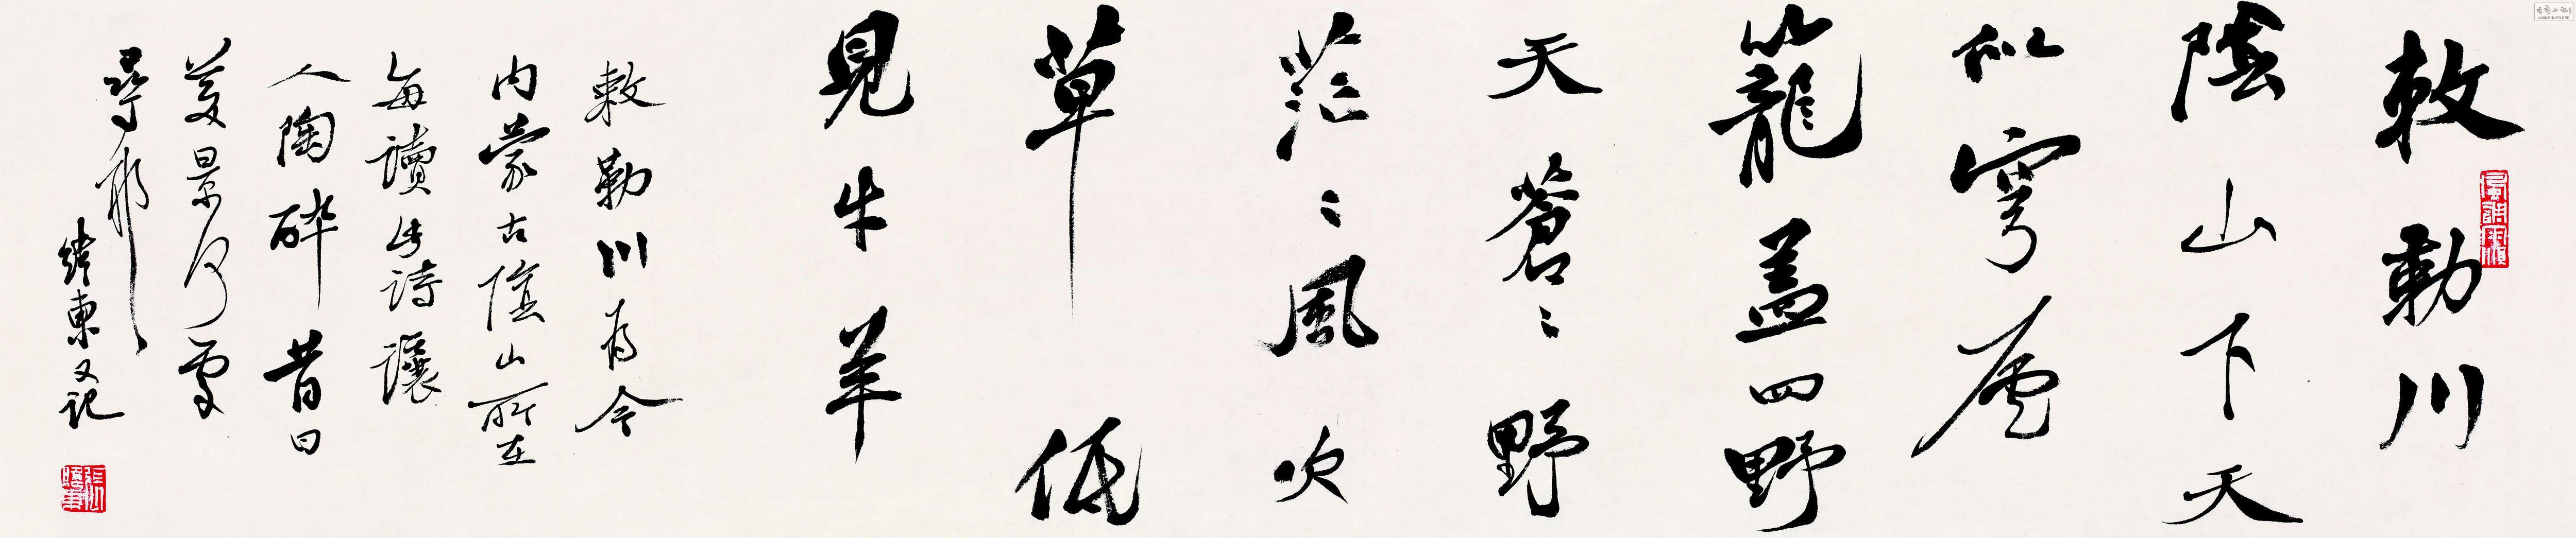 敕勒川
陰山下天
似穹廬
籠蓋四野
天蒼〻野
茫〻風吹
草低
見牛羊
敕勒川為今
内蒙古陰山一帶
每讀此詩讓
人陶醉昔日
美景何處
尋耶
煒東又記